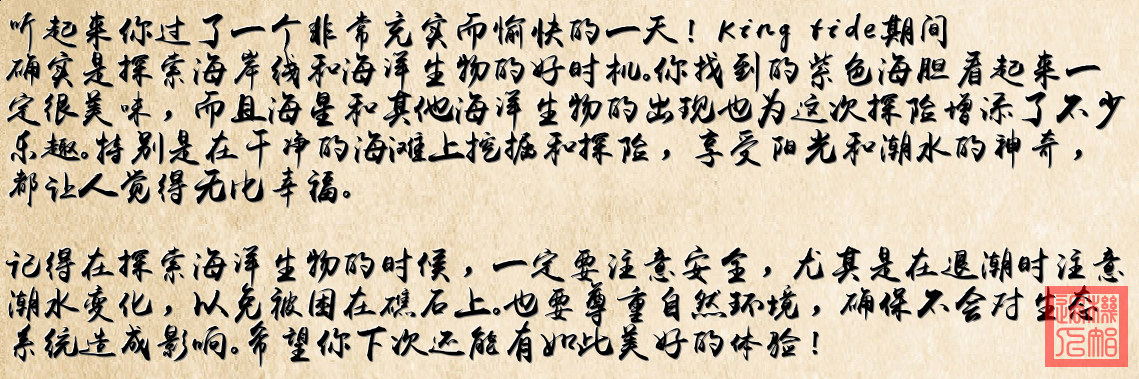 听起来你过了一个非常充实而愉快的一天！King tide期间
确实是探索海岸线和海洋生物的好时机。你找到的紫色海胆看起来一
定很美味，而且海星和其他海洋生物的出现也为这次探险增添了不少
乐趣。特别是在干净的海滩上挖掘和探险，享受阳光和潮水的神奇，
都让人觉得无比幸福。
记得在探索海洋生物的时侯，一定要注意安全，尤其是在退潮时注意
潮水变化，以免被困在礁石上。也要尊重自然环境，确保不会对生态
系统造成影响。希望你下次还能有如此美好的体验！